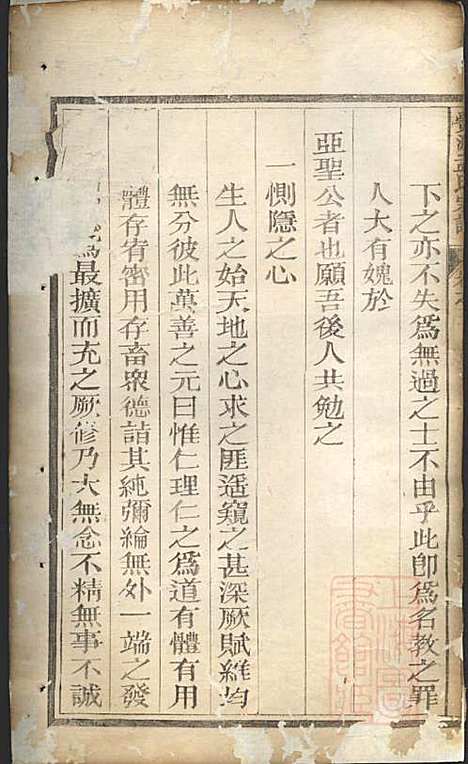 下之亦不失為無過之士不由乎此即為名教之罪
人大有媿於
亞聖公者也願吾後人共勉之
一惻隱之心
生人之始天地之心求之匪遥窺之甚深厥賦維均
無分彼此萬善之元曰惟仁理仁之為道有體有用
體存宥密用存畜衆德諳其純彌綸無外一端之發
為最擴而充之厥修乃大無念不精無事不誠